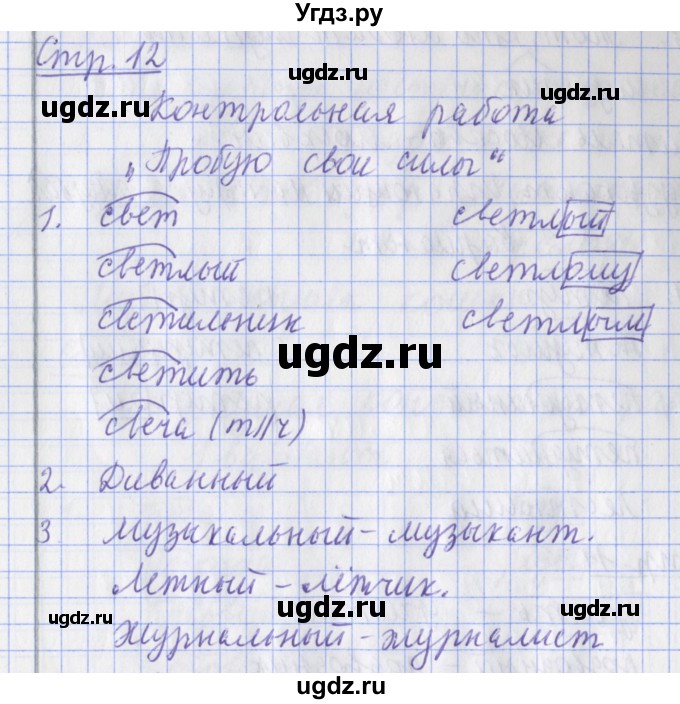 Угдз.ру
Стр. 12
ugdz.ru ugdz.ru
Контрольная работа
ugdz.ru ugdz.ru
„Пробую свои силы“
1. свет светлый
светлый светлому
светильник светлым
ugdz.ru
светить
свеча (т//ч)
2. Диванный
3. Музыкальный – музыкант.
Летный – лётчик.
ugdz.ru ugdz.ru
Журнальный – журналист
ugdz.ru